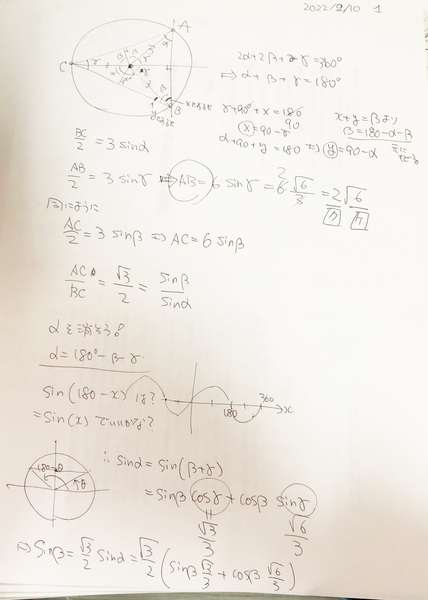 2022/2/10 1
A
C
B
xとおく
yとおく
2α+2β+2γ=360°
⇔ α+β+γ=180°
γ+90°+x=180
90
x=90-γ
α+90+y=180 ⇔ y=90-α
x+y=βより
β=180-α-β
BC/2 = 3 sinα
AB/2 = 3 sinγ ⇔ AB=6 sinγ = 6 √6/3 = 2√6
同じように
AC/2 = 3 sinβ ⇔ AC=6 sinβ
AC/BC = √3/2 = sinβ/sinα
αを消そう?
α=180°-β-γ
sin(180-x) は?
=sin(x) でいいのでは?
180
360
x
180-θ
θ
∴ sinα = sin(β+γ)
= sinβ cosγ + cosβ sinγ
√3/3
√6/3
⇒ sinβ = √3/2 sinα = √3/2 (sinβ √3/3 + cosβ √6/3)